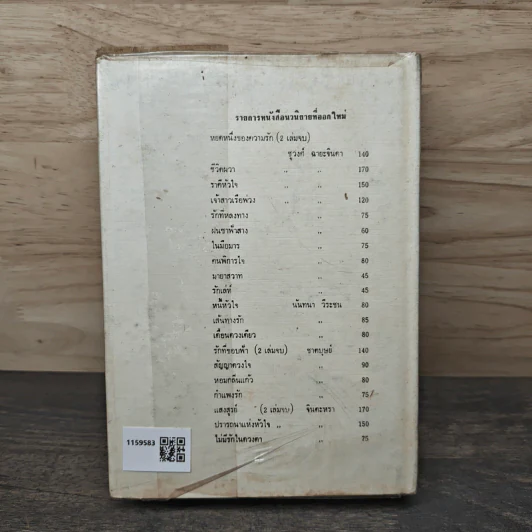 รายการหนังสือนวนิยายที่ออกใหม่
หยดหนึ่งของความรัก (2 เล่มจบ)
ชูวงศ์ ฉายะจินดา 140
ชีวิตผวา ,, ,, 170
ราคีหัวใจ ,, ,, 150
เจ้าสาวเรือพ่วง ,, ,, 120
รักที่หลงทาง ,, 75
ฝนซาฟ้าสาง ,, 60
ในมือมาร ,, 75
คนพิการใจ ,, 80
มายาสวาท ,, 45
รักเล่ห์ ,, 45
หนี้หัวใจ นันทนา วีระชน 80
เส้นทางรัก ,, 85
เดือนดวงเดียว ,, 80
รักที่ขอบฟ้า (2 เล่มจบ) ชาคบุษย์ 140
สัญญาดวงใจ ,, 90
หยมกลีนแก้ว ,, 80
กำแพงรัก ,, 75
แสงสูรย์ (2 เล่มจบ) จินตะหรา 170
ปรารถนาแห่งหัวใจ ,, ,, 150
ไม่มีรักในดวงตา ,, 75
1159583